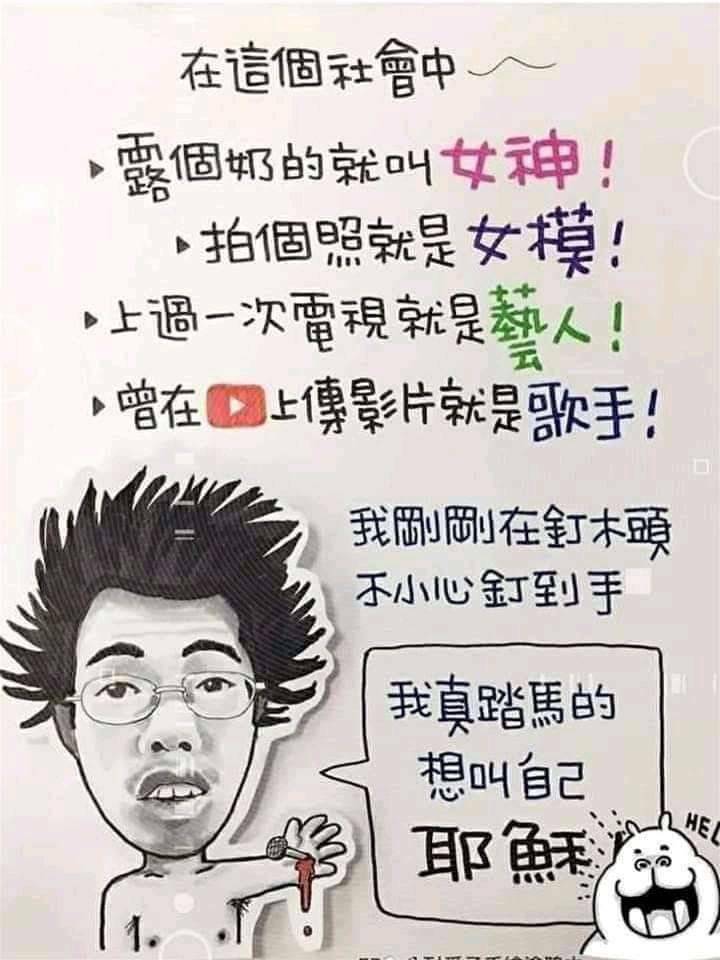 在這個社會中
▸露個奶的就叫女神！
▸拍個照就是女模！
▸上過一次電視就是藝人！
▸曾在上傳影片就是歌手！
我剛剛在釘木頭
不小心釘到手
我真踏馬的
想叫自己
耶穌
HEL